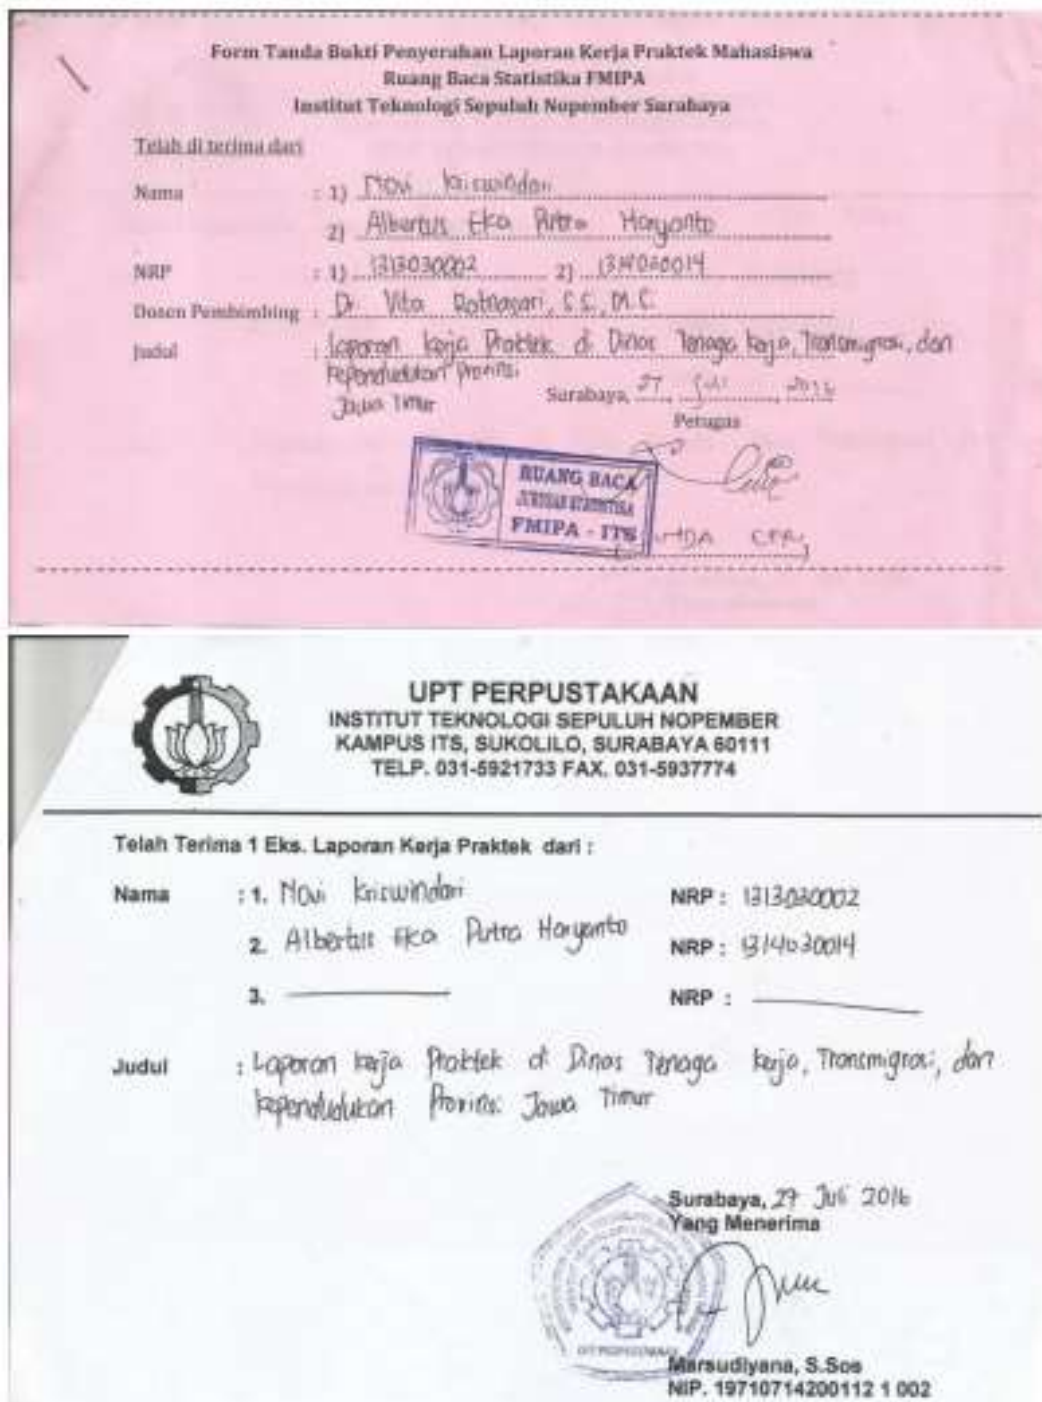 Form Tanda Bukti Penyerahan Laporan Kerja Praktek Mahasiswa
Ruang Baca Statistika FMIPA
Institut Teknologi Sepuluh Nopember Surabaya
Telah di terima dari
Nama : 1) Novi Kriswindari
2) Albertus Eka Putra Haryanto
NRP : 1) 1313030002 2) 1314030014
Dosen Pembimbing : Dr. Vita Ratnasari, S.Si, M.Si
Judul : Laporan Kerja Praktek di Dinas Tenaga Kerja, Transmigrasi, dan
Kependudukan Provinsi
Jawa Timur
Surabaya, 27 Juli 2016
Petugas
RUANG BACA
JURUSAN STATISTIKA
FMIPA - ITS
UPT PERPUSTAKAAN
INSTITUT TEKNOLOGI SEPULUH NOPEMBER
KAMPUS ITS, SUKOLILO, SURABAYA 60111
TELP. 031-5921733 FAX. 031-5937774
Telah Terima 1 Eks. Laporan Kerja Praktek dari :
Nama : 1. Novi Kriswindari NRP : 1313030002
2. Albertus Eka Putra Haryanto NRP : 1314030014
3. NRP :
Judul : Laporan Kerja Praktek di Dinas Tenaga Kerja, Transmigrasi, dan
Kependudukan Provinsi Jawa Timur
Surabaya, 27 Juli 2016
Yang Menerima
UPT PERPUSTAKAAN
Marsudiyana, S.Sos
NIP. 19710714200112 1 002